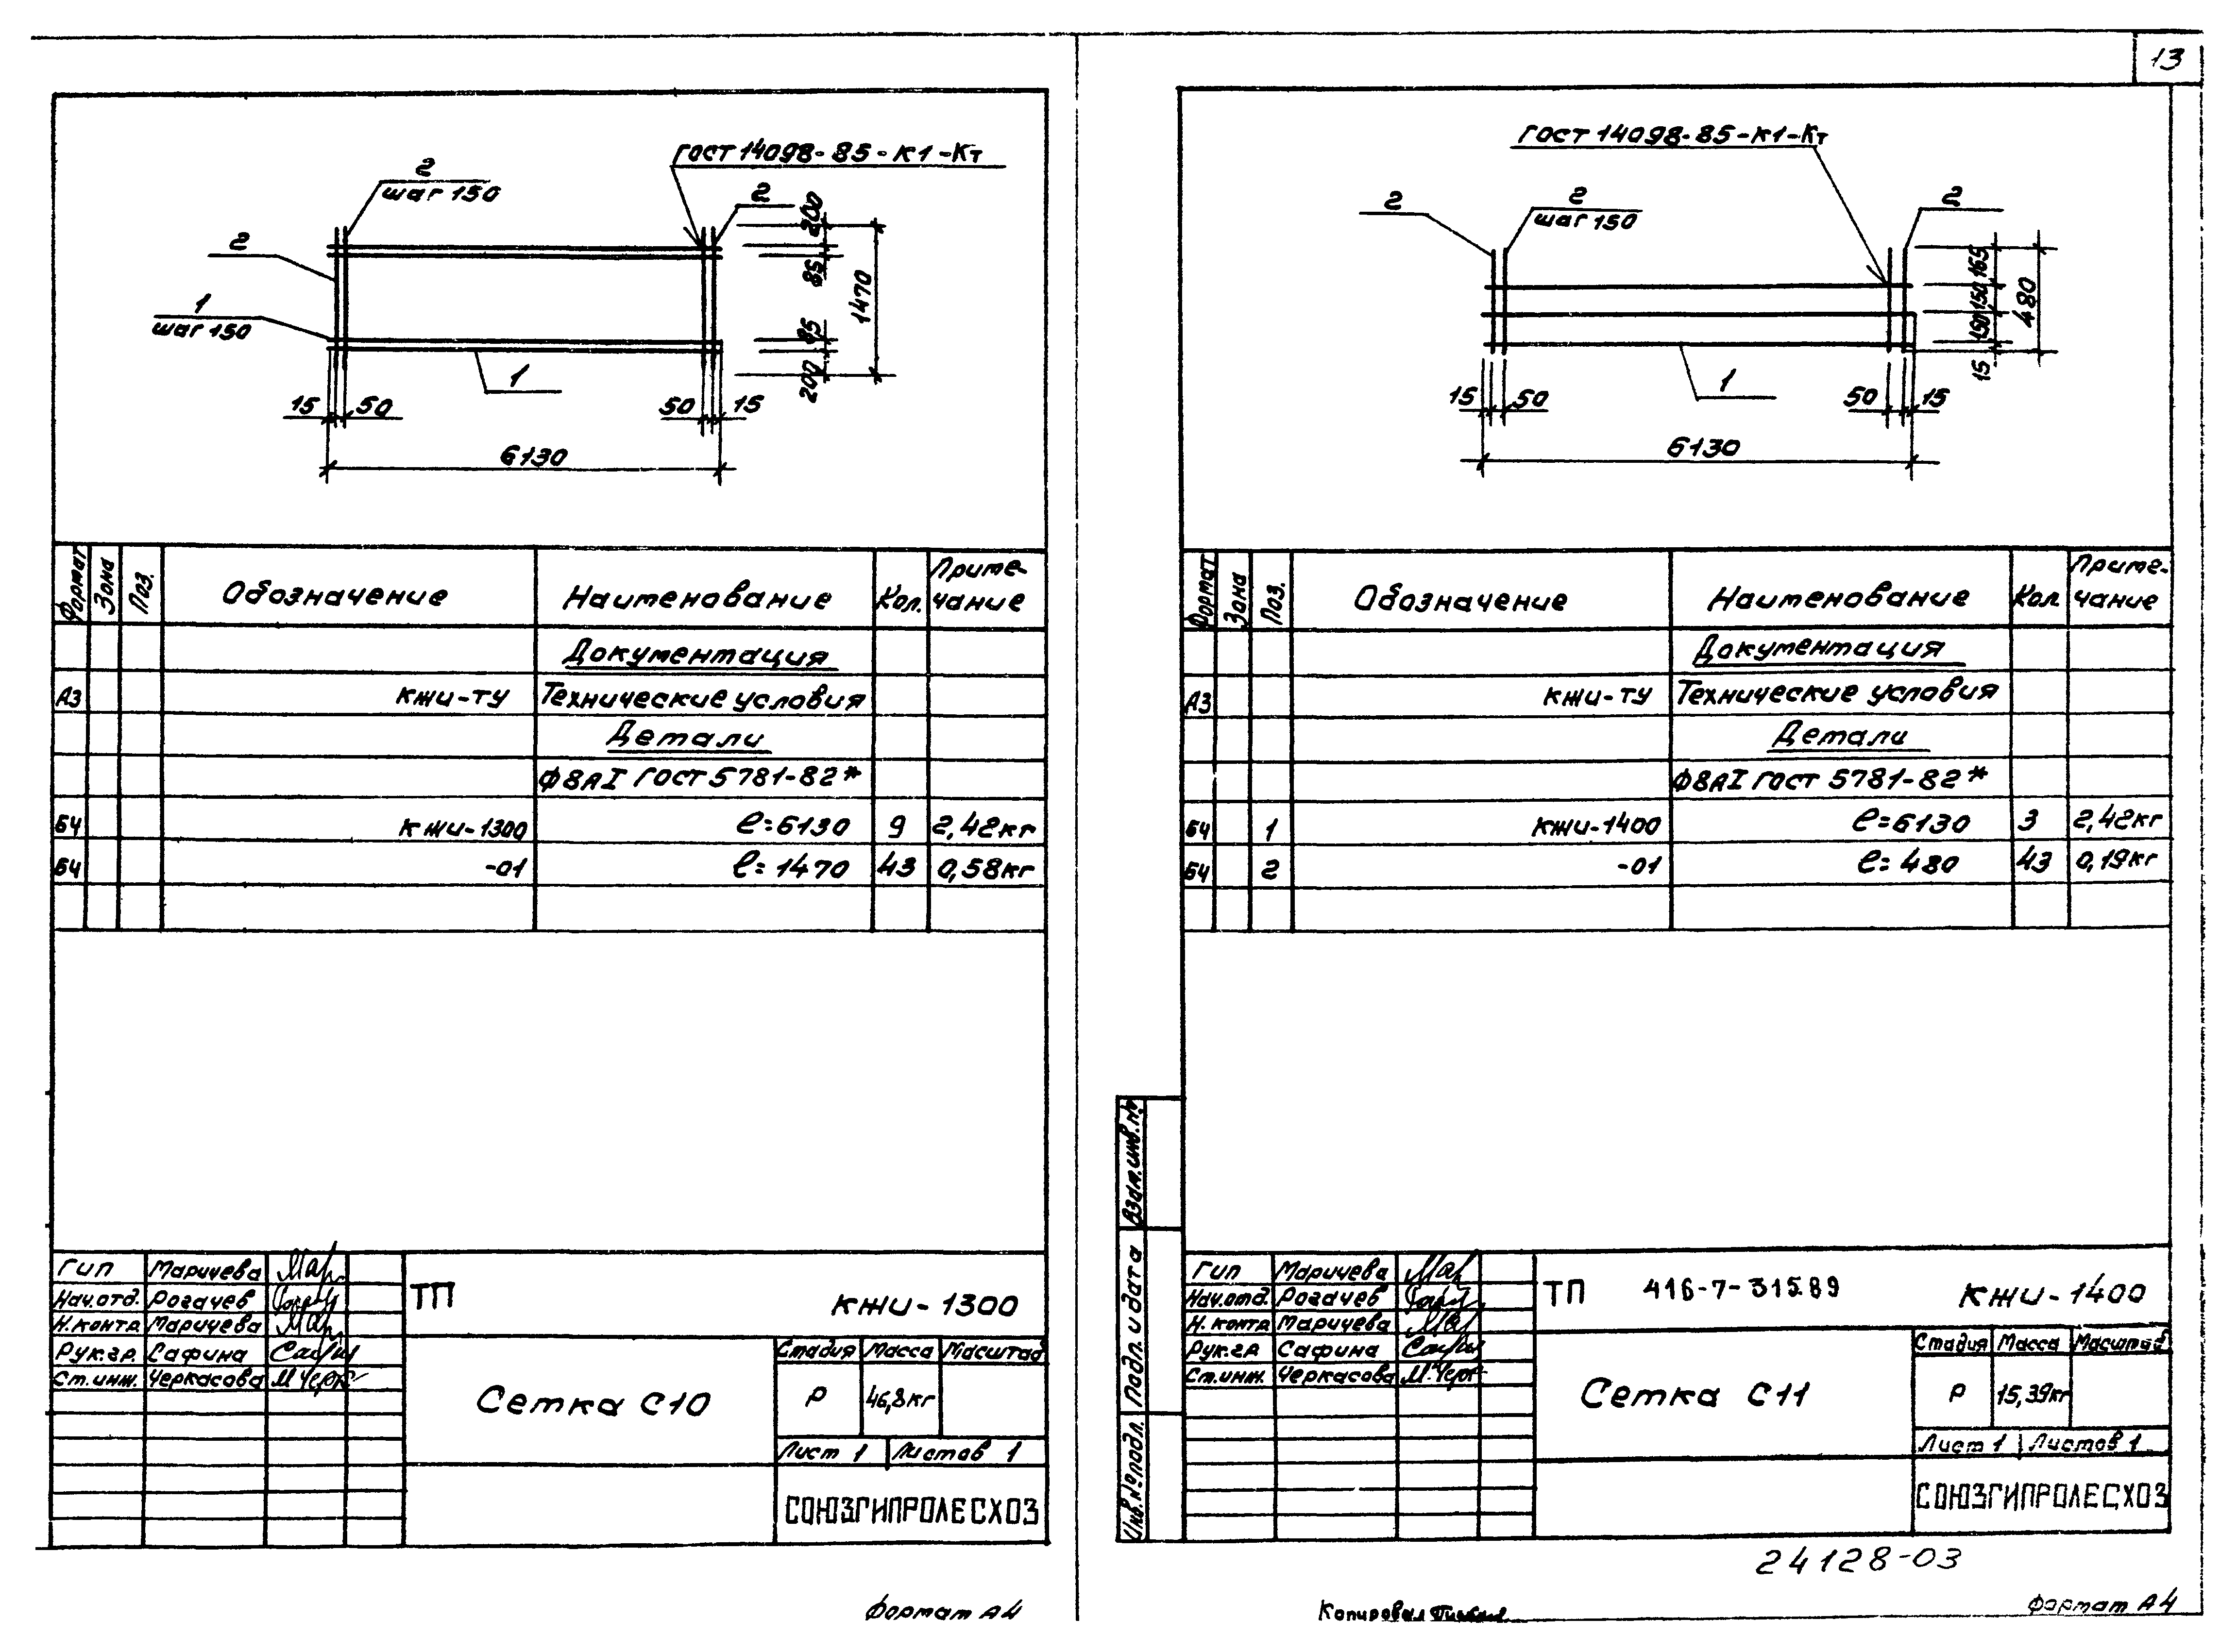 13
ГОСТ 14098-85-К1-Кт
2
шаг 150
2
2
1
шаг 150
1
200
85
1470
85
200
15 50
50 15
6130
Формат Зона Поз. Обозначение Наименование Кол. Приме-
чание
Документация
А3 КЖИ-ТУ Технические условия
Детали
Ф8АI ГОСТ 5781-82*
БЧ КЖИ-1300 ℓ=6130 9 2,42кг
БЧ -01 ℓ=1470 43 0,58кг
ГИП Маричева
Нач.отд. Рогачев
Н.контр. Маричева
Рук.гр. Сафина
Ст.инж. Черкасова
ТП КЖИ-1300
Сетка С10
Стадия Масса Масштаб
Р 46,8кг
Лист 1 Листов 1
СОЮЗГИПРОЛЕСХОЗ
Формат А4
ГОСТ 14098-85-К1-Кт
2
2
шаг 150
2
1
165
150
150
15
480
15 50
50 15
6130
Формат Зона Поз. Обозначение Наименование Кол. Приме-
чание
Документация
А3 КЖИ-ТУ Технические условия
Детали
Ф8АI ГОСТ 5781-82*
БЧ 1 КЖИ-1400 ℓ=6130 3 2,42кг
БЧ 2 -01 ℓ=480 43 0,19кг
Взам.инв.№
Подп. и дата
Инв.№подл.
ГИП Маричева
Нач.отд. Рогачев
Н.контр Маричева
Рук.гр Сафина
Ст.инж. Черкасова
ТП 416-7-315.89 КЖИ-1400
Сетка С11
Стадия Масса Масштаб
Р 15,39кг
Лист 1 Листов 1
СОЮЗГИПРОЛЕСХОЗ
24128-03
Копировал
Формат А4